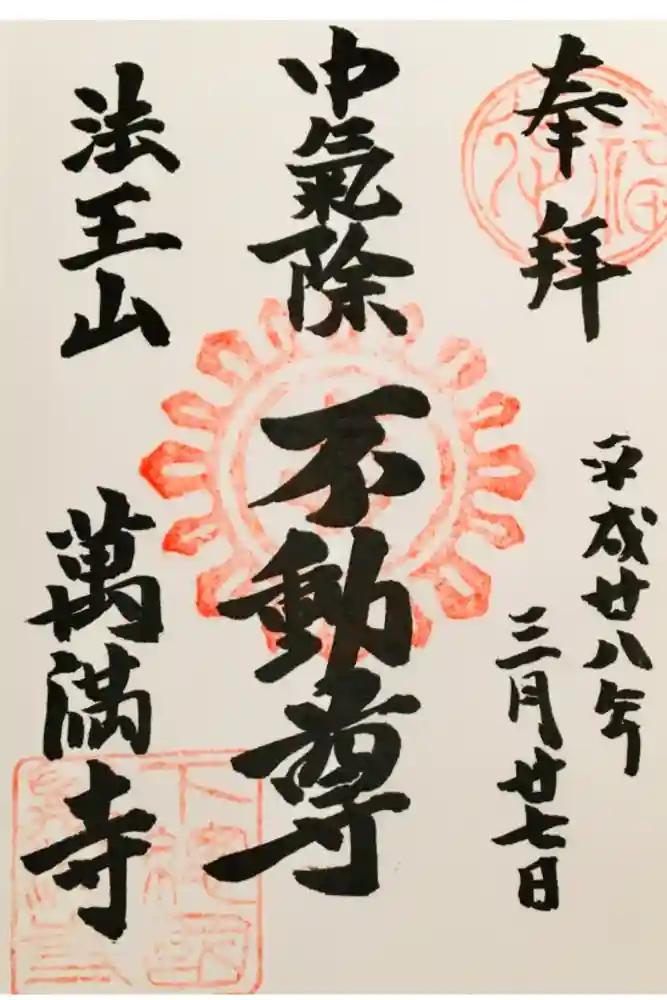 奉拜
平成廿八年
三月廿七日
中氣除
不動尊
法王山
萬満寺